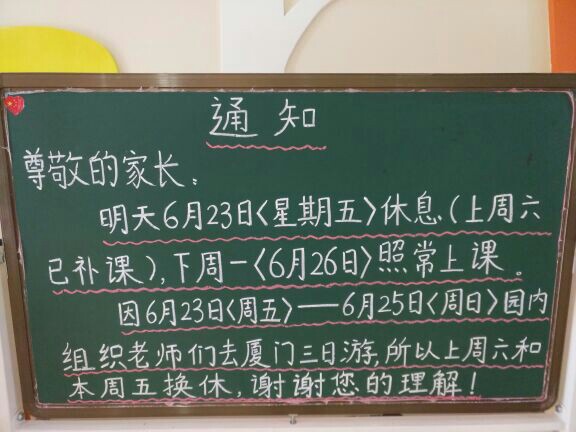 通知
尊敬的家长：
明天6月23日〈星期五〉休息（上周六
已补课），下周一〈6月26日〉照常上课。
因6月23日〈周五〉——6月25日〈周日〉园内
组织老师们去厦门三日游，所以上周六和
本周五换休，谢谢您的理解！